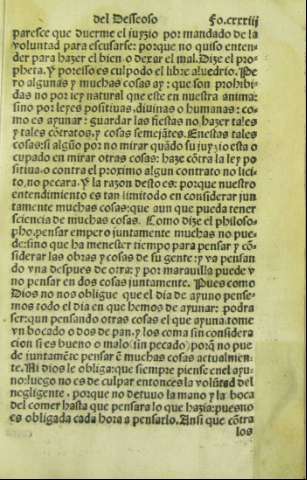 del Desseoso Fo.cxxxiij
paresce que duerme el juyzio por mandado de la
voluntad para escusarse: porque no quiso enten-
der para hazer el bien o dexar el mal. Dize el pro-
pheta. Y por esso es culpado el libre aluedrio. Pe
ro algunas y muchas cosas ay: que son prohibi
das no por ley natural que este en nuestra anima:
sino por leyes positiuas, diuinas o humanas: co
mo es ayunar: guardar las fiestas no hazer tales
y tales cõtratos, y cosas semejãtes. En estas tales
cosas: si algũo por no mirar quãdo su juyzio esta o
cupado en mirar otras cosas: haze cõtra la ley po
sitiua. o contra el proximo algun contrato no lici
to, no pecara. Y la razon desto es: porque nuestro
entendimiento es tan limitado en considerar jun
tamente muchas cosas: que aun que pueda tener
sciencia de muchas cosas. Como dize el philoso-
pho. pensar empero juntamente muchas no pue
de: sino que ha menester tiempo para pensar y cõ-
siderar las obras y cosas de su gente: y va pensan
do vna despues de otra: y por marauilla puede v
no pensar en dos cosas juntamente. Pues como
Dios no nos obligue que el dia de ayuno pense-
mos todo el dia en que hemos de ayunar: podra
ser: qun pensando otras cosas el que ayuna. tome
vn bocado o dos de pan, y los coma sin considera
cion si es bueno o malo (sin pecado) porq̃ no pue
de juntamẽte pensar ẽ muchas cosas actualmien-
te. Ni dios le obliga: que siempre piense en el ayu-
no: luego no es de culpar entonces la volũtad del
negligente, porque no detuuo la mano y la boca
del comer hasta que pensara lo que hazia: pues no
es obligada cada hora a pensarlo. Ansi que cõtra
los